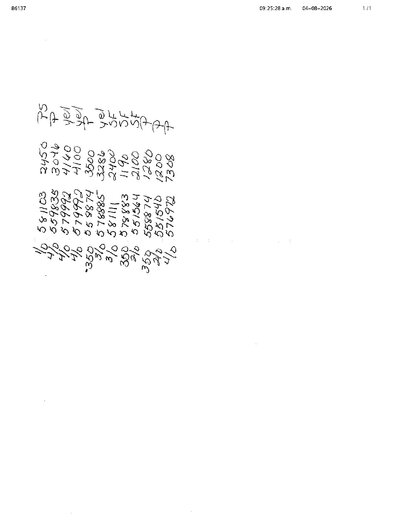 86137 09:25:28 a.m. 04-08-2026 1/1
1/0 581103 2450 PS
4/0 559835 3046 P
4/0 579992 4160 yel
4/0 579992 4100 yel
350 558874 3500 P
3/0 578885 3286 yel
3/0 581111 2400 SF
350 578883 1190 SF
2/0 551564 2100 SF
350 558874 1280 P
2/0 551540 1200 P
4/0 576972 7308 P